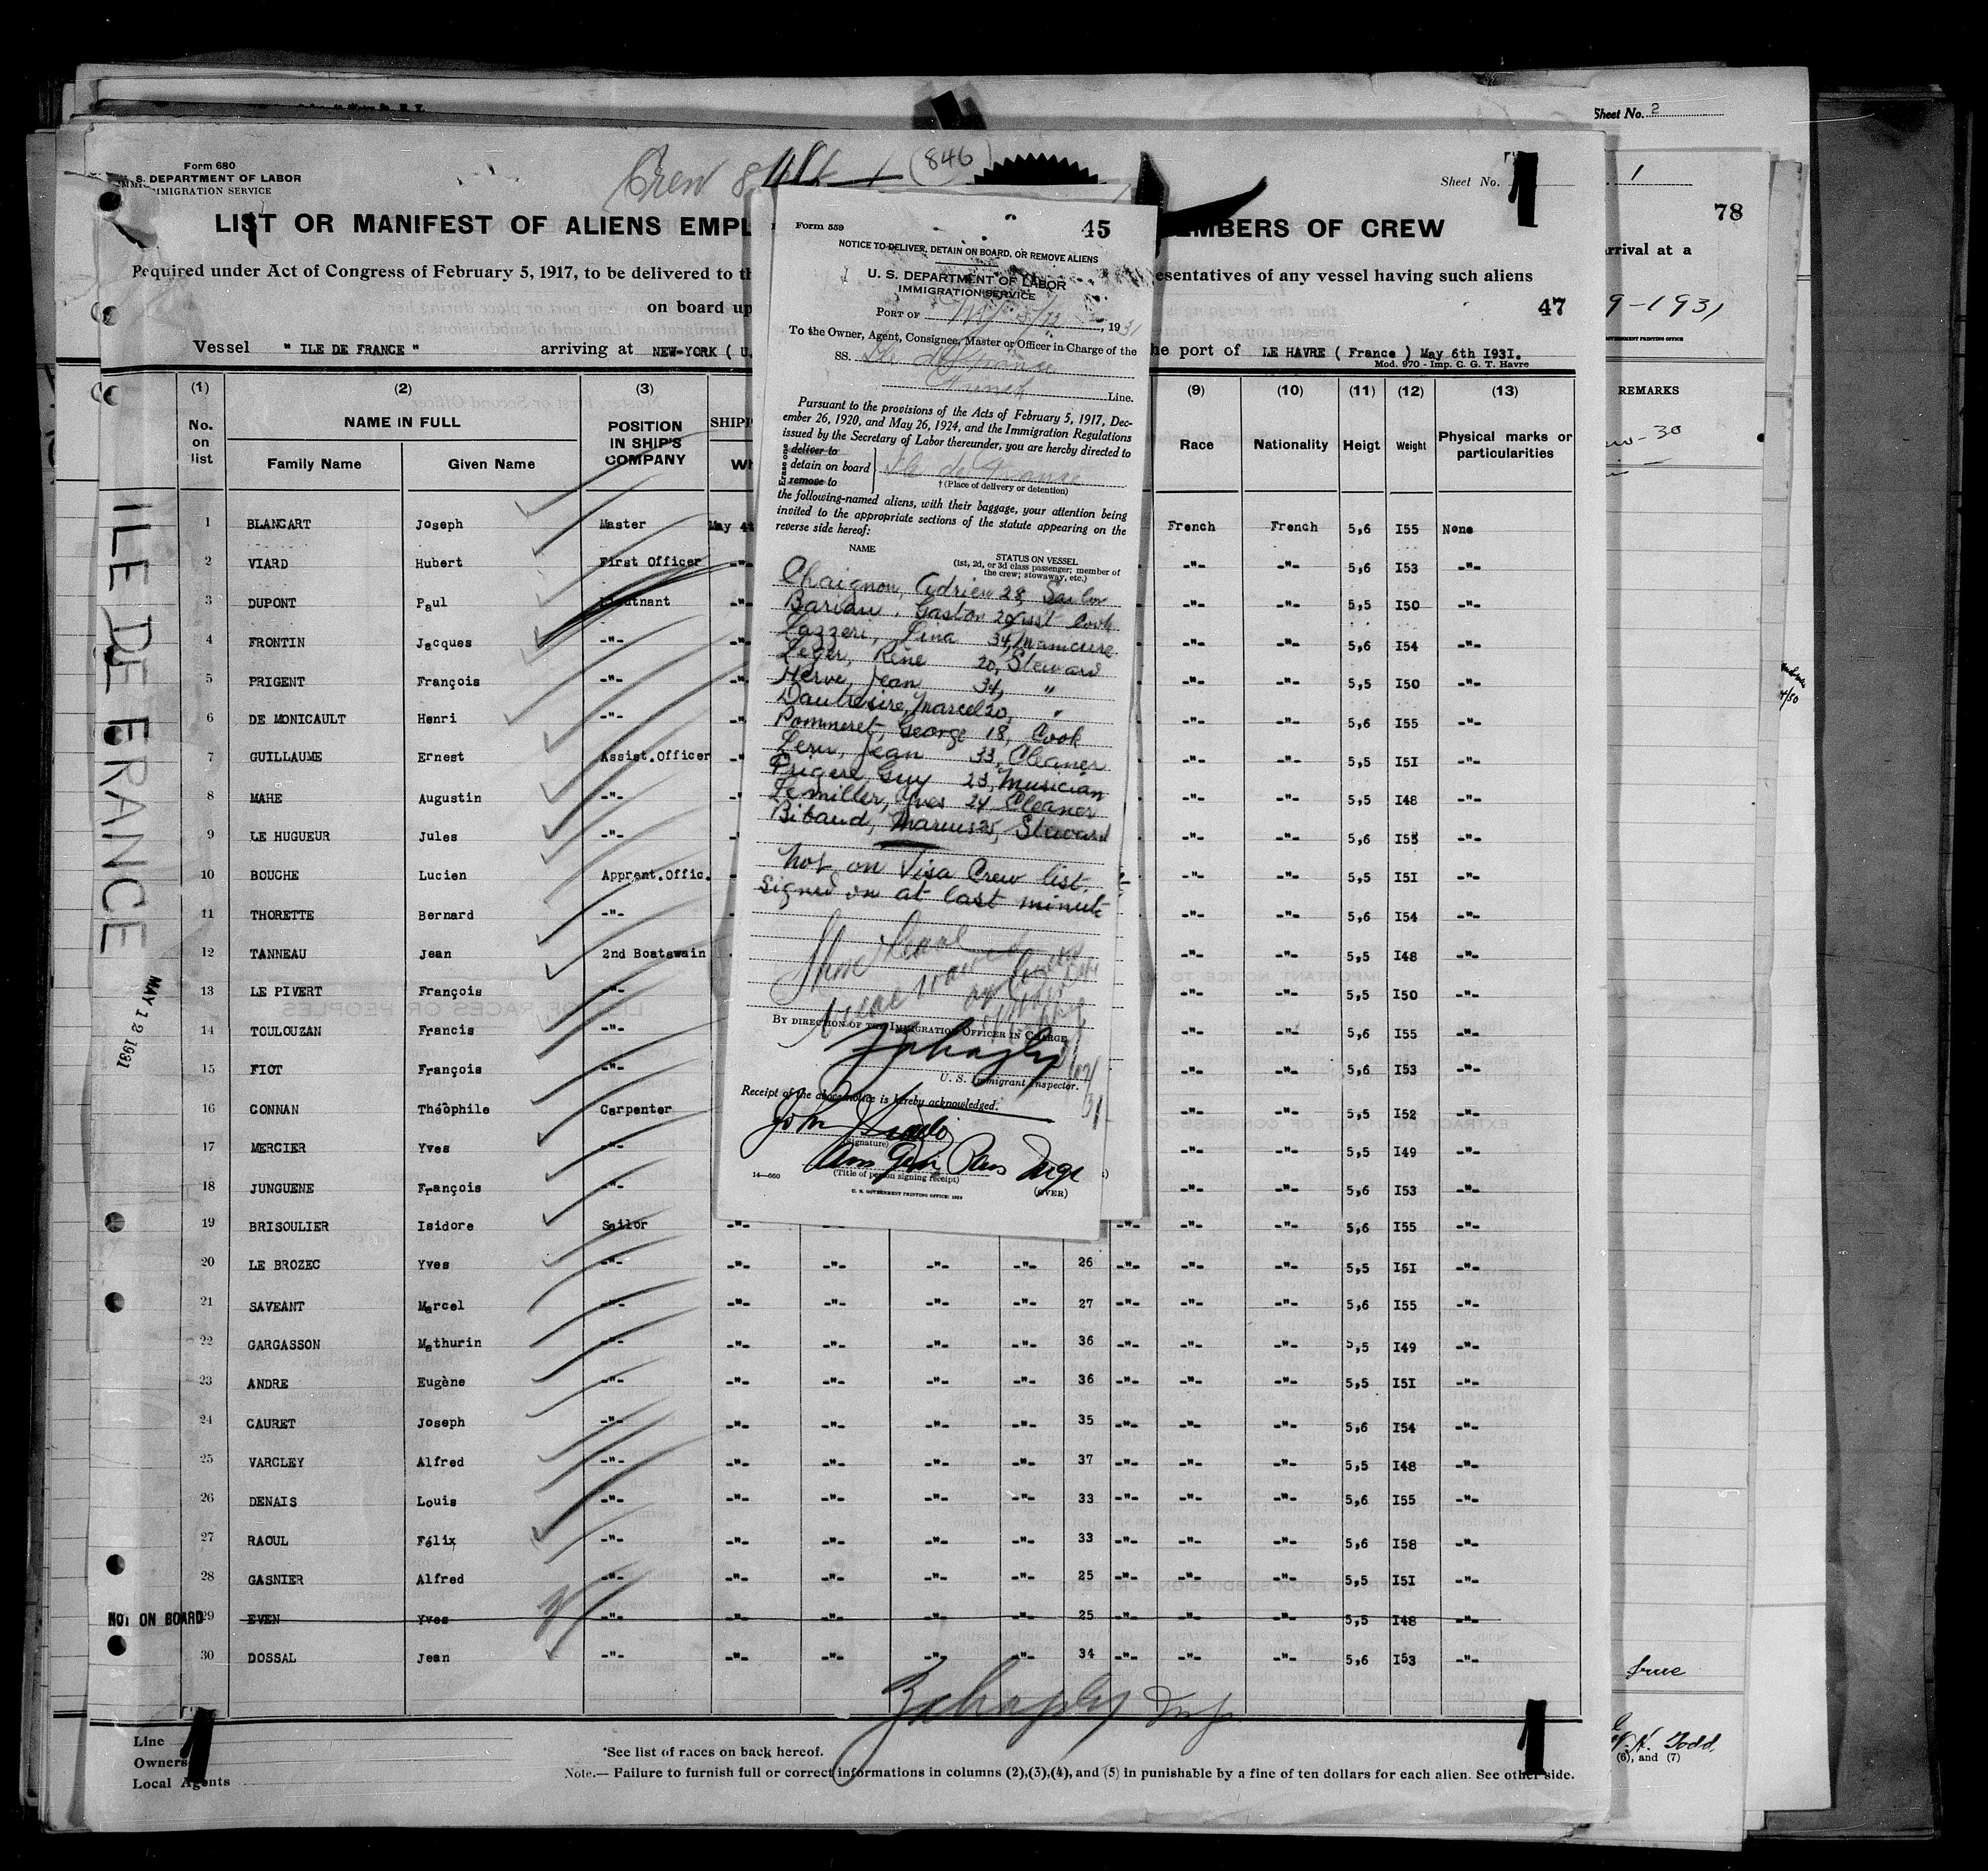 Sheet No. 2
1
78
arrival at a
9-1931
REMARKS
Form 680
U. S. DEPARTMENT OF LABOR
IMMIGRATION SERVICE
Crew
846
Sheet No. 1
LIST OR MANIFEST OF ALIENS EMPL
EMBERS OF CREW
Required under Act of Congress of February 5, 1917, to be delivered to th
esentatives of any vessel having such aliens
on board up
47
Vessel " ILE DE FRANCE " arriving at NEW-YORK ( U.
he port of LE HAVRE ( France ) May 6th I93I.
Mod. 970 - Imp. C. G. T. Havre
(1) (2) (3) (9) (10) (11) (12) (13)
No. on list
NAME IN FULL
Family Name Given Name
POSITION IN SHIP'S COMPANY
SHIPP
Wh
Race Nationality Heigt Weight Physical marks or particularities
1 BLANCART Joseph Master May 4t French French 5,6 I55 None
2 VIARD Hubert First Officer -"- -"- -"- 5,6 I53 -"-
3 DUPONT Paul Lieutnant -"- -"- -"- 5,5 I50 -"-
4 FRONTIN Jacques -"- -"- -"- -"- 5,6 I54 -"-
5 PRIGENT François -"- -"- -"- -"- 5,5 I50 -"-
6 DE MONICAULT Henri -"- -"- -"- -"- 5,6 I55 -"-
7 GUILLAUME Ernest Assist.Officer -"- -"- -"- 5,5 I5I -"-
8 MAHE Augustin -"- -"- -"- 5,5 I48 -"-
9 LE HUGUEUR Jules -"- -"- -"- 5,6 I55 -"-
10 BOUCHE Lucien Apprent.Offic. -"- -"- 5,5 I5I -"-
11 THORETTE Bernard -"- -"- -"- 5,6 I54 -"-
12 TANNEAU Jean 2nd Boatswain -"- -"- 5,5 I48 -"-
13 LE PIVERT François -"- -"- -"- 5,5 I50 -"-
14 TOULOUZAN Francis -"- -"- -"- 5,6 I55 -"-
15 FIOT François -"- -"- -"- 5,6 I53 -"-
16 CONNAN Théophile Carpenter -"- -"- 5,5 I52 -"-
17 MERCIER Yves -"- -"- -"- 5,5 I49 -"-
18 JUNGUENE François -"- -"- -"- 5,6 I53 -"-
19 BRISOULIER Isidore Sailor -"- -"- -"- -"- 5,6 I55 -"-
20 LE BROZEC Yves -"- -"- -"- -"- -"- 26 -"- -"- -"- 5,5 I5I -"-
21 SAVEANT Marcel -"- -"- -"- -"- -"- 27 -"- -"- -"- 5,6 I55 -"-
22 GARGASSON Mathurin -"- -"- -"- -"- -"- 36 -"- -"- -"- 5,5 I49 -"-
23 ANDRE Eugène -"- -"- -"- -"- -"- 36 -"- -"- -"- 5,5 I5I -"-
24 CAURET Joseph -"- -"- -"- -"- -"- 35 -"- -"- -"- 5,6 I54 -"-
25 VARCLEY Alfred -"- -"- -"- -"- -"- 37 -"- -"- -"- 5,5 I48 -"-
26 DENAIS Louis -"- -"- -"- -"- -"- 33 -"- -"- -"- 5,6 I55 -"-
27 RAOUL Félix -"- -"- -"- -"- -"- 33 -"- -"- -"- 5,6 I58 -"-
28 GASNIER Alfred -"- -"- -"- -"- -"- 25 -"- -"- -"- 5,5 I5I -"-
NOT ON BOARD 29 EVEN Yves -"- -"- -"- -"- -"- 25 -"- -"- -"- 5,5 I48 -"-
30 DOSSAL Jean -"- -"- -"- -"- -"- 34 -"- -"- -"- 5,6 I53 -"-
ILE DE FRANCE
MAY 12 1931
Line
Owners
Local Agents
*See list of races on back hereof.
Note.— Failure to furnish full or correct informations in columns (2),(3),(4), and (5) in punishable by a fine of ten dollars for each alien. See other side.
Form 559
45
NOTICE TO DELIVER, DETAIN ON BOARD, OR REMOVE ALIENS
U. S. DEPARTMENT OF LABOR
IMMIGRATION SERVICE
PORT OF N.Y. 5/12, 1931
To the Owner, Agent, Consignee, Master or Officer in Charge of the
SS. Ile de France
French Line.
Pursuant to the provisions of the Acts of February 5, 1917, Dec-
ember 26, 1920, and May 26, 1924, and the Immigration Regulations
issued by the Secretary of Labor thereunder, you are hereby directed to
Erase one
deliver to
detain on board
remove to
Ile de France
† (Place of delivery or detention)
the following-named aliens, with their baggage, your attention being
invited to the appropriate sections of the statute appearing on the
reverse side hereof:
NAME
STATUS ON VESSEL
(1st, 2d, or 3d class passenger; member of
the crew; stowaway, etc.)
Chaignon, Adrien 28, Sailor
Bariau, Gaston 20, Asst Cook
Lazzeri, Lina 34, Manicure
Leger, Rene 20, Steward
Herve, Jean 34, "
Dautresire, Marcel 20, "
Pommeret, George 18, Cook
Jean 33, Cleaner
Guy 23, Musician
Lemiller, Yves 24 Cleaner
Bibaud, Marius 25, Steward
Not on Visa Crew list.
Signed on at last minute
Shore Leave
BY DIRECTION OF THE IMMIGRATION OFFICER IN CHARGE
U. S. Immigrant Inspector.
Receipt of the above notice is hereby acknowledged.
John
(Signature)
Ass Gen Pass Mgr
(Title of person signing receipt)
14—660
U. S. GOVERNMENT PRINTING OFFICE
(OVER)
true
Todd
(6), and (7)